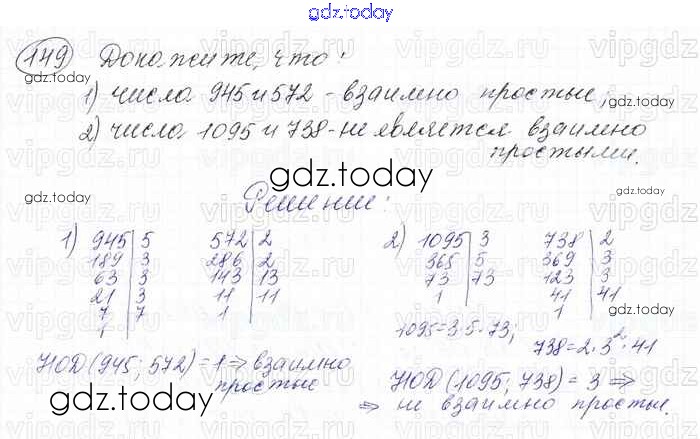 gdz.today
149 Докажите, что:
1) числа 945 и 572 - взаимно простые;
gdz.today
2) числа 1095 и 738 - не является взаимно
простыми.
gdz.today
gdz.today
gdz.today
Решение:
1) 945 | 5 572 | 2
189 | 3 286 | 2
63 | 3 143 | 13
21 | 3 11 | 11
7 | 7 1
1
2) 1095 | 3 738 | 2
365 | 5 369 | 3
73 | 73 123 | 3
1 41 | 41
1
gdz.today
1095=3·5·73;
738=2·3²·41
НОД (945; 572) = 1 ⇒ взаимно
простые
gdz.today
НОД (1095; 738) = 3 ⇒
⇒ не взаимно простые.
gdz.today